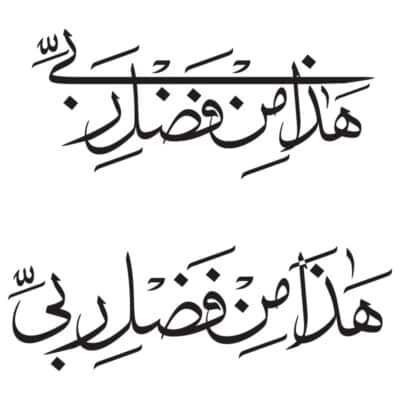 هَٰذَا مِنْ فَضْلِ رَبِّي
هَٰذَا مِنْ فَضْلِ رَبِّي